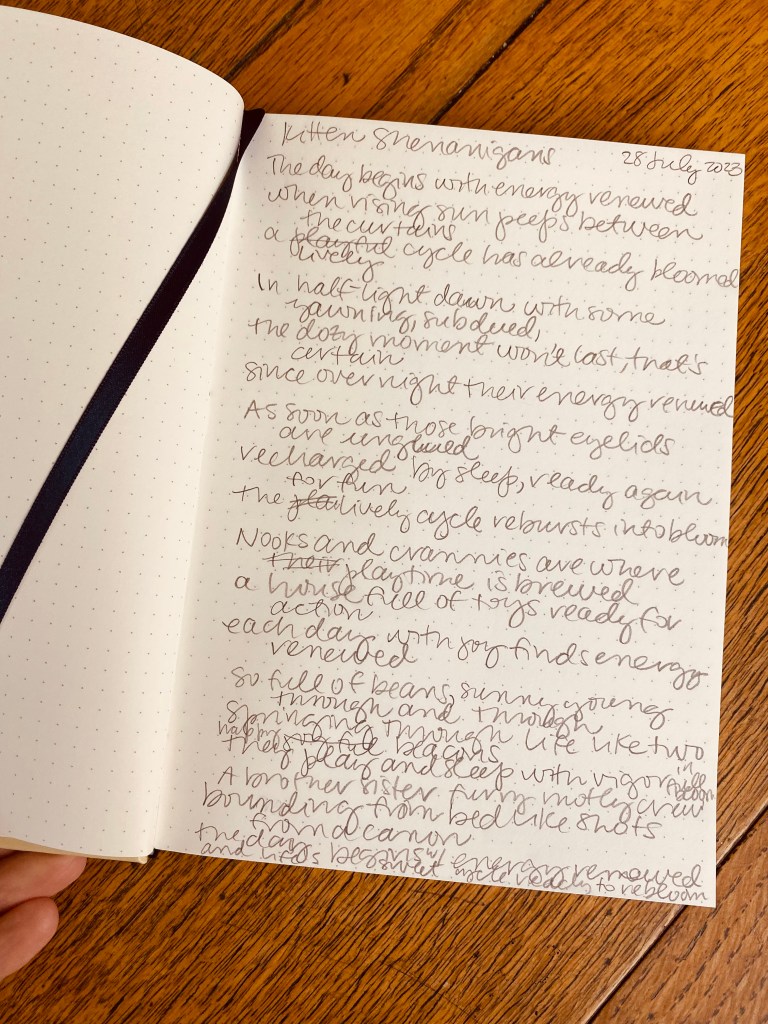 Kitten Shenanigans 28 July 2023
The day begins with energy renewed
when rising sun peeps between
the curtains
a playful cycle has already bloomed
lively
In half-light dawn, with some
yawning, subdued,
the dozy moment won't last, that's
certain
since overnight their energy renewed
As soon as those bright eyelids
are unglued
recharged by sleep, ready again
for fun
the pla lively cycle rebursts into bloom
Nooks and crannies are where
their playtime is brewed
a house full of toys ready for
action
each day with joy finds energy
renewed
So full of beans, sunny, young
through and through
springing through life like two
happy
the joyful beacons
in
of play and sleep with vigor full
bloom
A brother sister furry motley crew
bounding from bed like shots
from a canon
the day begins w/ energy renewed
and life's sweet cycle ready to rebloom